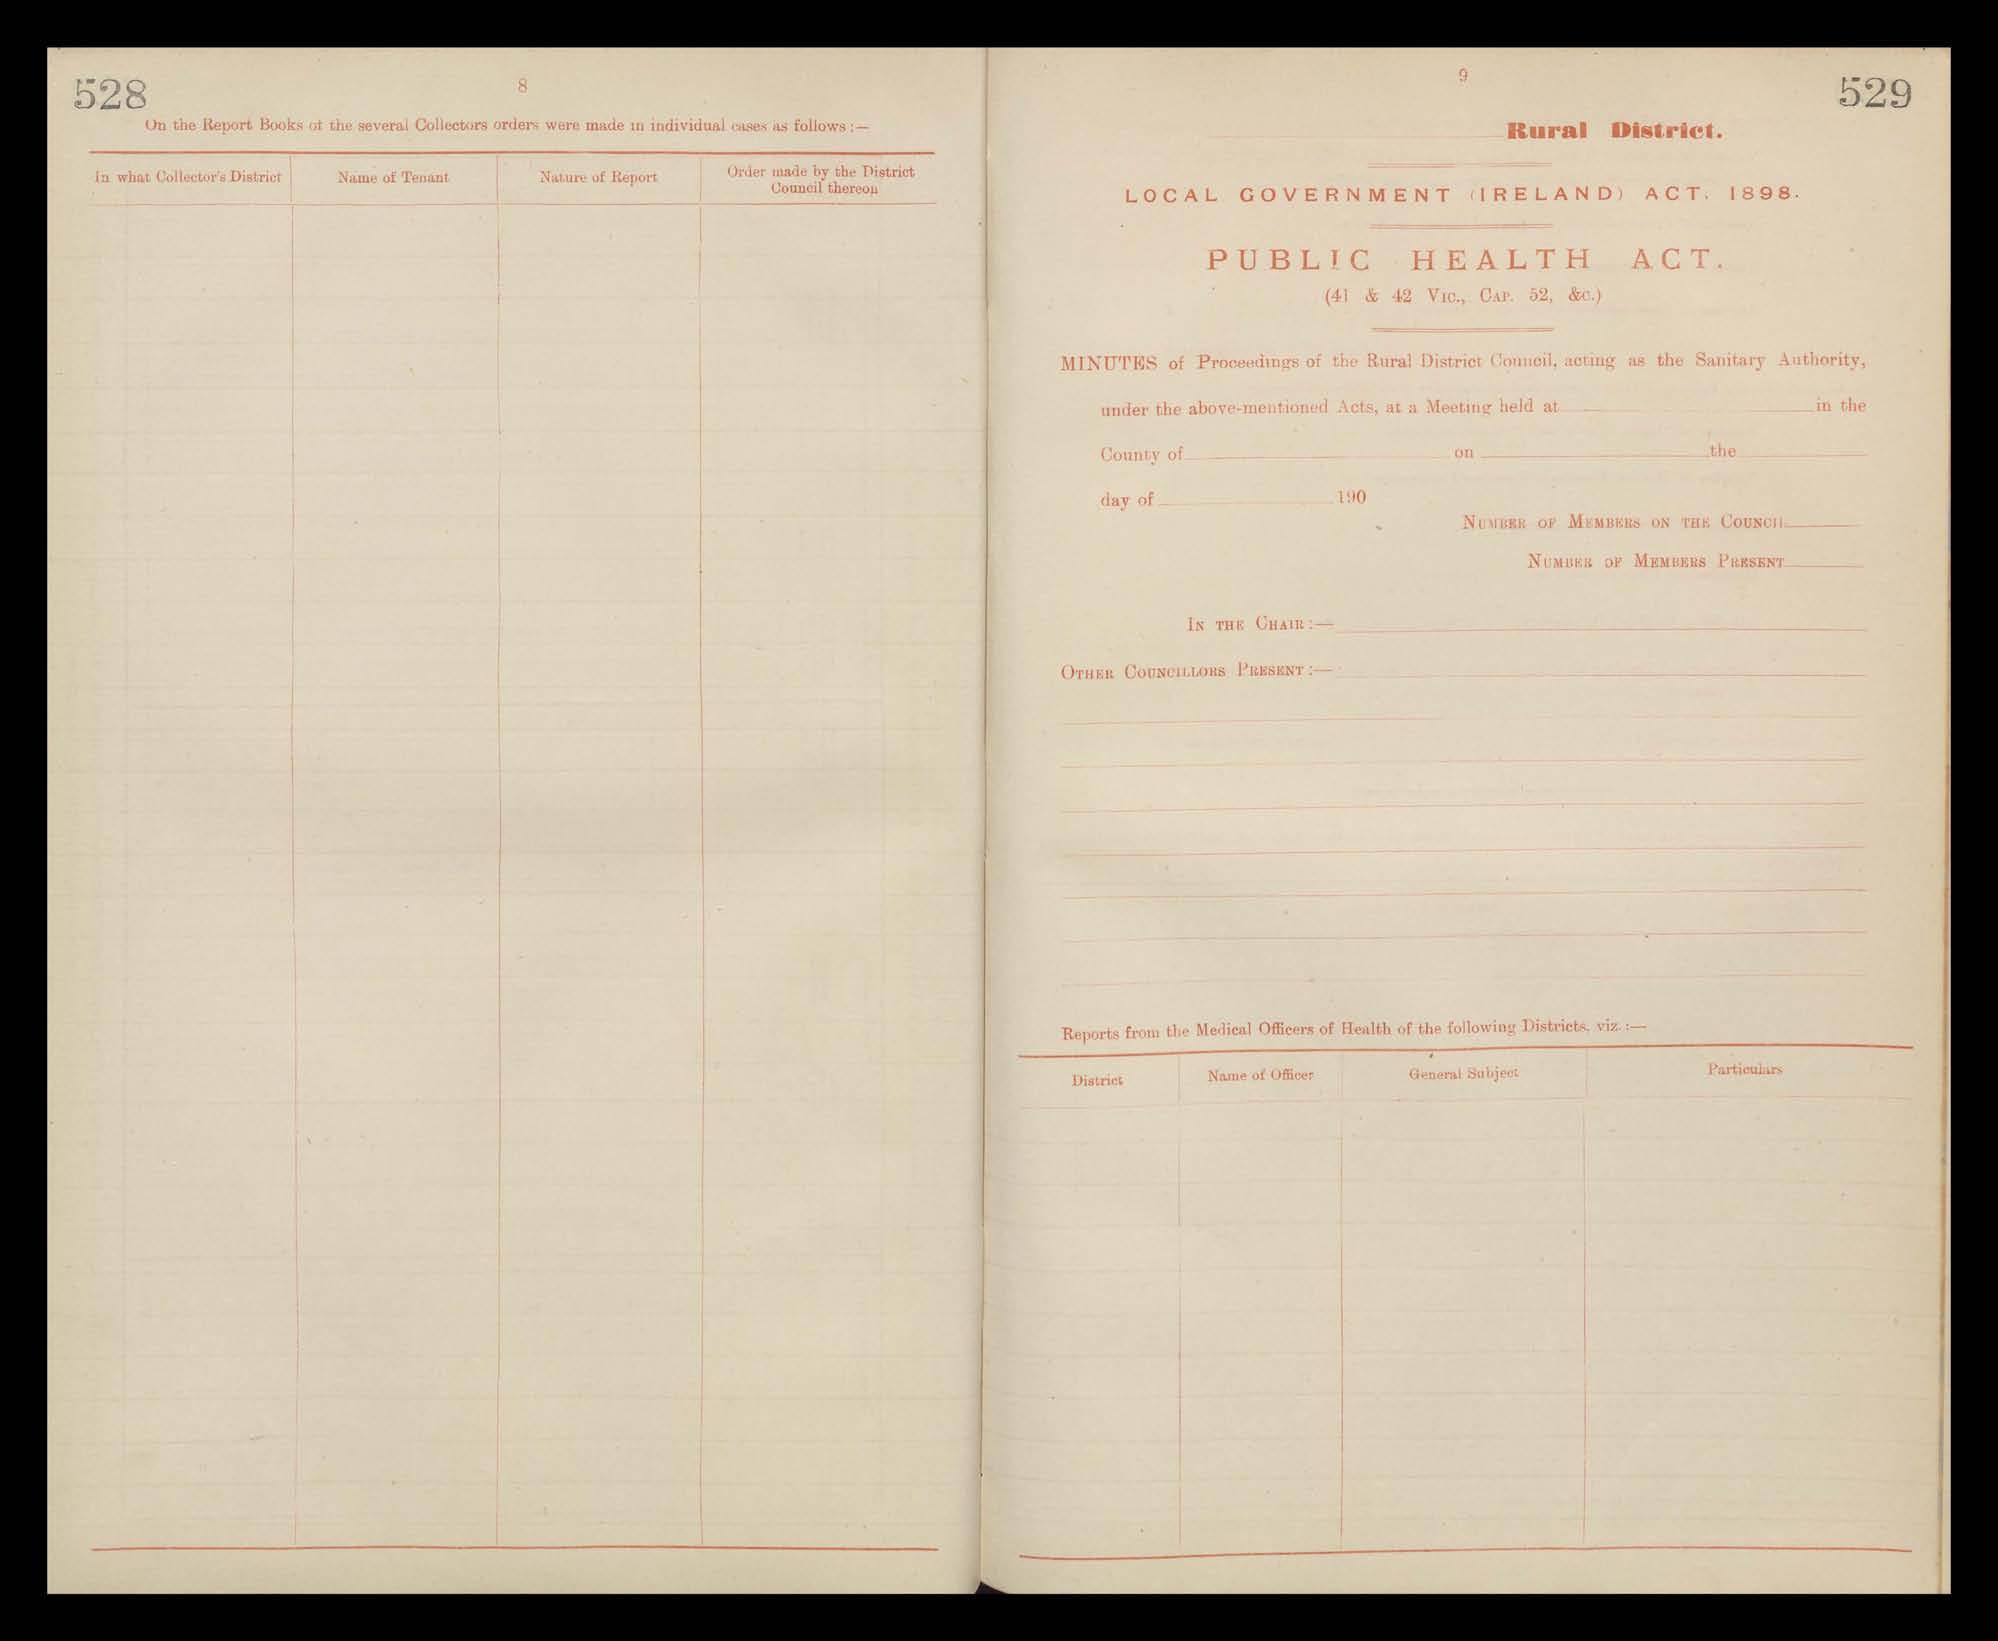 528
8
On the Report Books of the several Collectors orders were made in individual cases as follows :—
In what Collector's District
Name of Tenant
Nature of Report
Order made by the District
Council thereon
9
529
Rural District.
LOCAL GOVERNMENT (IRELAND) ACT, 1898.
PUBLIC HEALTH ACT.
(41 & 42 Vic., Cap. 52, &c.)
MINUTES of Proceedings of the Rural District Council, acting as the Sanitary Authority,
under the above-mentioned Acts, at a Meeting held at in the
County of on the
day of 190
Number of Members on the Council
Number of Members Present
In the Chair :—
Other Councillors Present :—
Reports from the Medical Officers of Health of the following Districts, viz. :—
District
Name of Officer
General Subject
Particulars